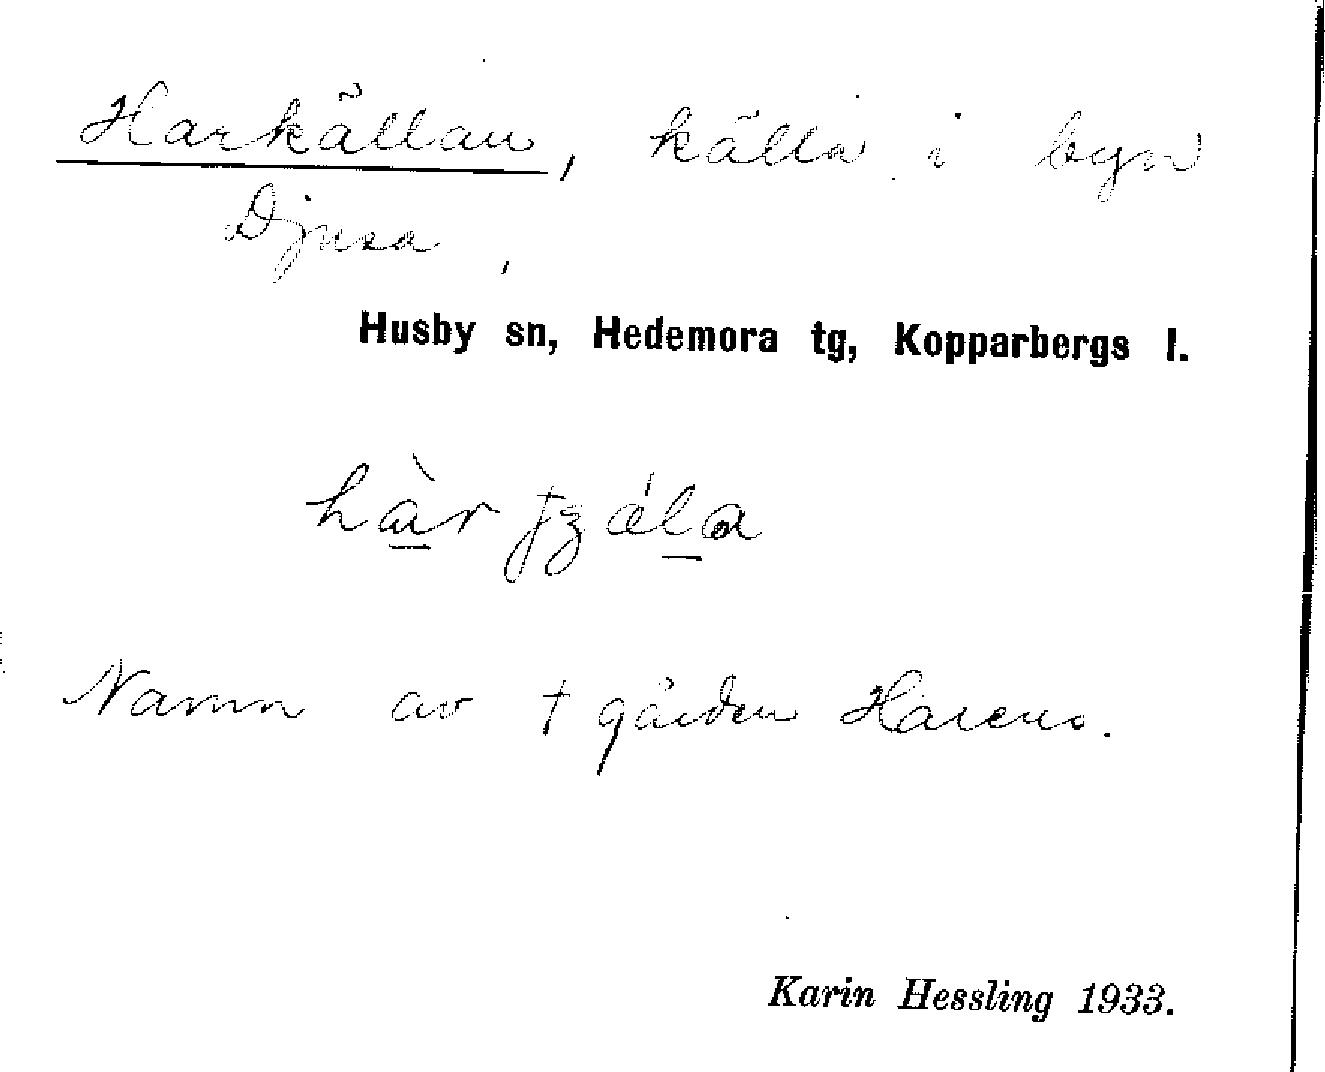 Harkällan, källa i byn
Djusa,
Husby sn, Hedemora tg, Kopparbergs l.
Namn av † gården Harens.
Karin Hessling 1933.